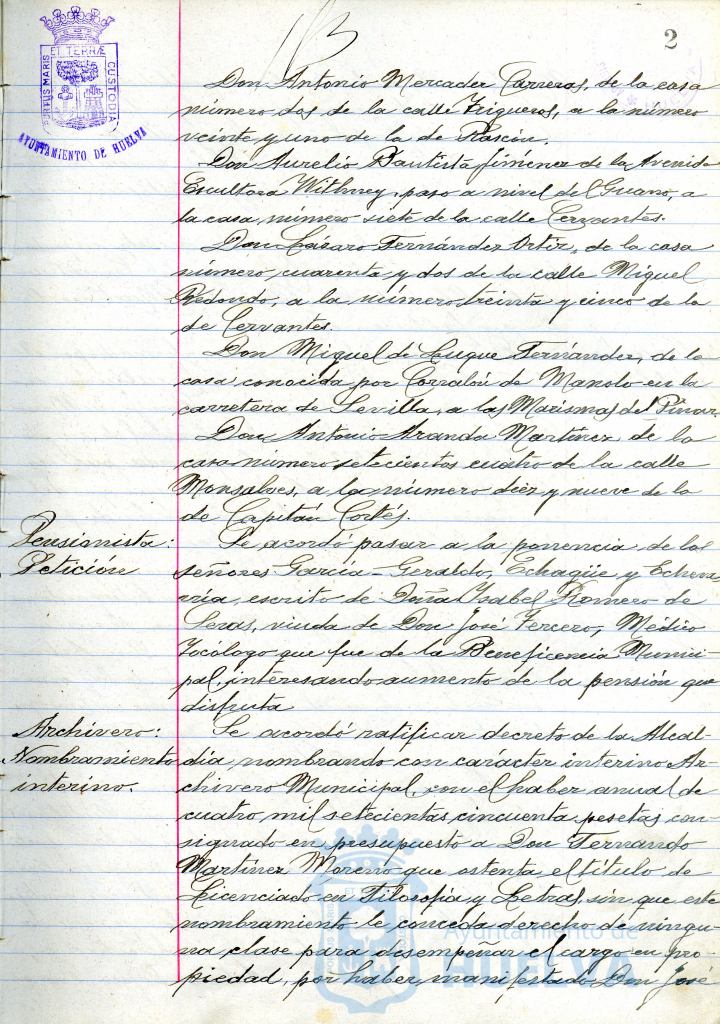 2
PORTUS MARIS ET TERRÆ CUSTODIA
AYUNTAMIENTO DE HUELVA
Don Antonio Mercader Carreras, de la casa
número dos de la calle Trigueros, a la número
veinte y uno de la de Rascón.
Don Aurelio Bautista Jimenez de la Avenida
Escultora Withney, paso a nivel del Guano, a
la casa número siete de la calle Cervantes.
Don Lázaro Fernández Ortiz, de la casa
número cuarenta y dos de la calle Miguel
Redondo, a la número treinta y cinco de la
de Cervantes.
Don Miguel de Luque Fernández, de la
casa conocida por Corralón de Manolo en la
carretera de Sevilla, a las Marismas del Pinar.
Don Antonio Aranda Martínez de la
casa número setecientos cuatro de la calle
Monsalves, a la número diez y nueve de la
de Capitán Cortés.
Pensionista:
Petición
Se acordó pasar a la ponencia de los
señores García-Geraldo, Echagüe y Echeva-
rría, escrito de Doña Isabel Romero de
Seras, viuda de Don José Tercero, Médico
Tocólogo que fue de la Beneficencia Munici-
pal, interesando aumento de la pensión que
disfruta
Archivero:
Nombramiento
interino.
Se acordó ratificar decreto de la Alcal-
día, nombrando con carácter interino Ar-
chivero Municipal, con el haber anual de
cuatro mil setecientas cincuenta pesetas con-
signado en presupuesto a Don Fernando
Martínez Moreno que ostenta el título de
Licenciado en Filosofía y Letras, sin que este
nombramiento le conceda derecho de ningu-
na clase para desempeñar el cargo en pro-
piedad, por haber manifestado Don José
Ayuntamiento de
HUELVA